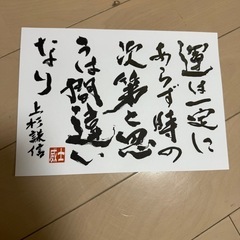 運は一定に
あらず時の
次第と思
うは間違い
なり
上杉謙信
威士